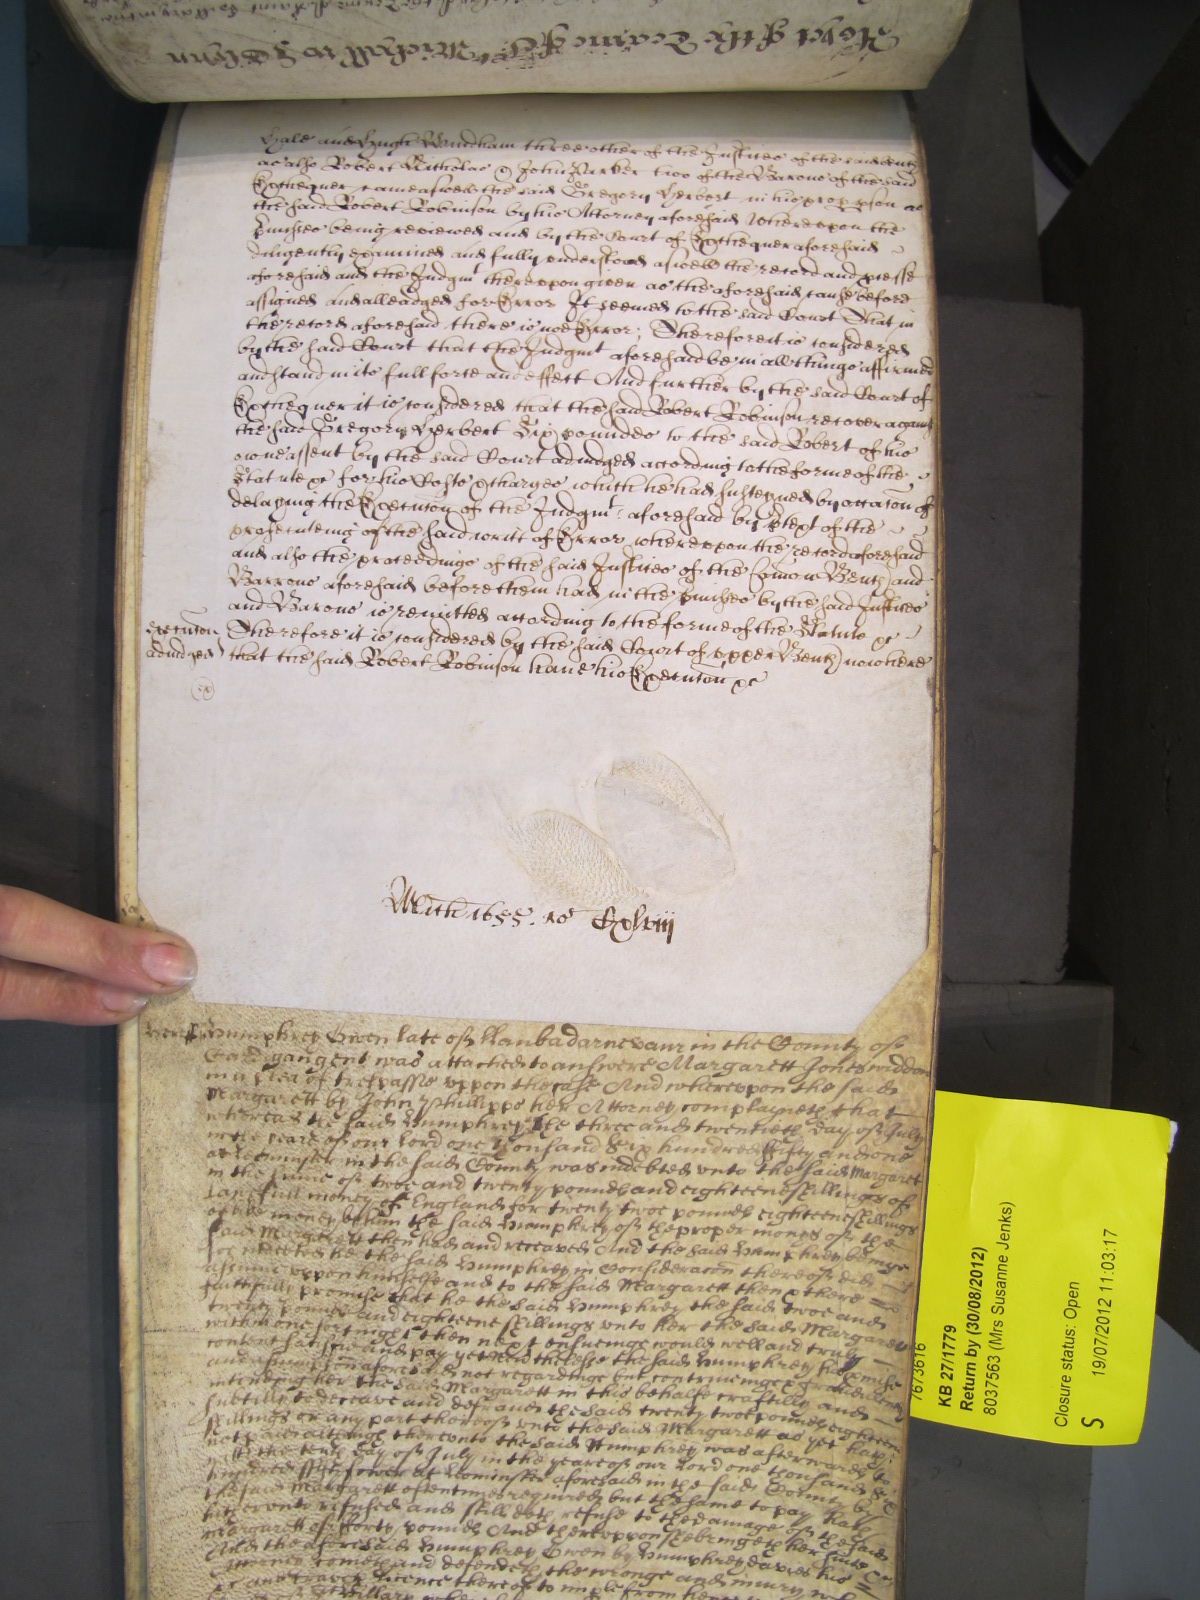 Hale and Hugh Windham three other of the Justices of the said Bench
as also Robert Nicholas & John Parker two of the Barrons of the said
Exchequer came aswell the said Gregory Herbert in his prop person as
the said Robert Robinson by his Attorney aforesaid Whereupon the
pmisses being reviewed and by the Court of Exchequer aforesaid
diligently examined and fully understood aswell the record and pcesse
aforesaid and the Judgmt thereupon given as the aforesaid cause before
assigned and alleadged for Error It seemed to the said Court That in
the record aforesaid there is noe Error; Therefore it is considered
by the said Court that the Judgmt aforesaid be in all things affirmed
and stand in its full force and effect And further by the said Court of
Exchequer it is considered that the said Robert Robinson recover against
the said Gregory Herbert Six poundes to the said Robert of his
owne assent by the said Court adiudged according to the forme of the
Statute &c for his Costs & charges which he had susteyned by occacon of
delaying the Execucon of the Judgmt aforesaid by ptext of the
prosecuteing of the said writt of Error whereupon the record aforesaid
and also the proceedings of the said Justices of the Comon Bench and
Barrons aforesaid before them had in the pmisses by the said Justices
and Barons is remitted according to the forme of the Statute &c
Execucon Therefore it is considered by the said Court of upper Bench now here
adiudged that the said Robert Robinson have his Execucon &c
Mich 1655. Ro Cxlviij
Humphrey Owen late of llanbadarnevaur in the County of
Cardigan gent was attached to answere Margarett Jones widdow
in a plea of trespasse uppon the case And whereuppon the said
Margarett by John Phillipps her Attorney complayneth that
whereas the said Humphrey the three and twentieth day of July
in the yeare of our lord one thousand six hundred fifty and one
at leominster in the said County was indebted unto the said Margaret
in the summe of twoe and twenty pounds and eighteene shillings of
lawfull money of England for twenty twoe pounds eighteene shillings
of like money by him the said Humphrey of the proper money of the
said Margarett then had and receaved And the said Humphrey being
soe indebted he the said Humphrey in Consideracon thereof did
assume uppon himselfe and to the said Margarett then & there
faithfully promise that he the said Humphrey the said twoe and
twenty pounds and eighteene shillings unto her the said Margarett
within one fortnight then next ensueinge would well and truly
content satisfie and pay yet Nevthelesse the said Humphrey his pmise
and assumpcon aforesaid not regardinge but contriveinge & fraudulently
intending her the said Margarett in this behalfe craftilly and
subtilly to deceave and defraude the said twenty twoe pounds eighteene
shillings or any part thereof unto the said Margarett as yet hath
not paid although thereunto the said Humphrey was afterwards
the tenth day of July in the yeare of our lord one thousand six
hundred fifty fower at leominster aforesaid in the said County by
the said Margarett oftentimes required but the same to pay hath
hitherunto refused and still doth refuse to the damage of the said
Margarett of forty pounds And thereuppon she bringeth her suite &c
And the aforesaid Humphrey Owen by Humphrey davies his
Attorney cometh and defendeth the wronge and iniury when
&c and craveth licence thereof to imple
7673616
KB 27/1779
Return by (30/08/2012)
8037563 (Mrs Susanne Jenks)
Closure status: Open
S 19/07/2012 11:03:17